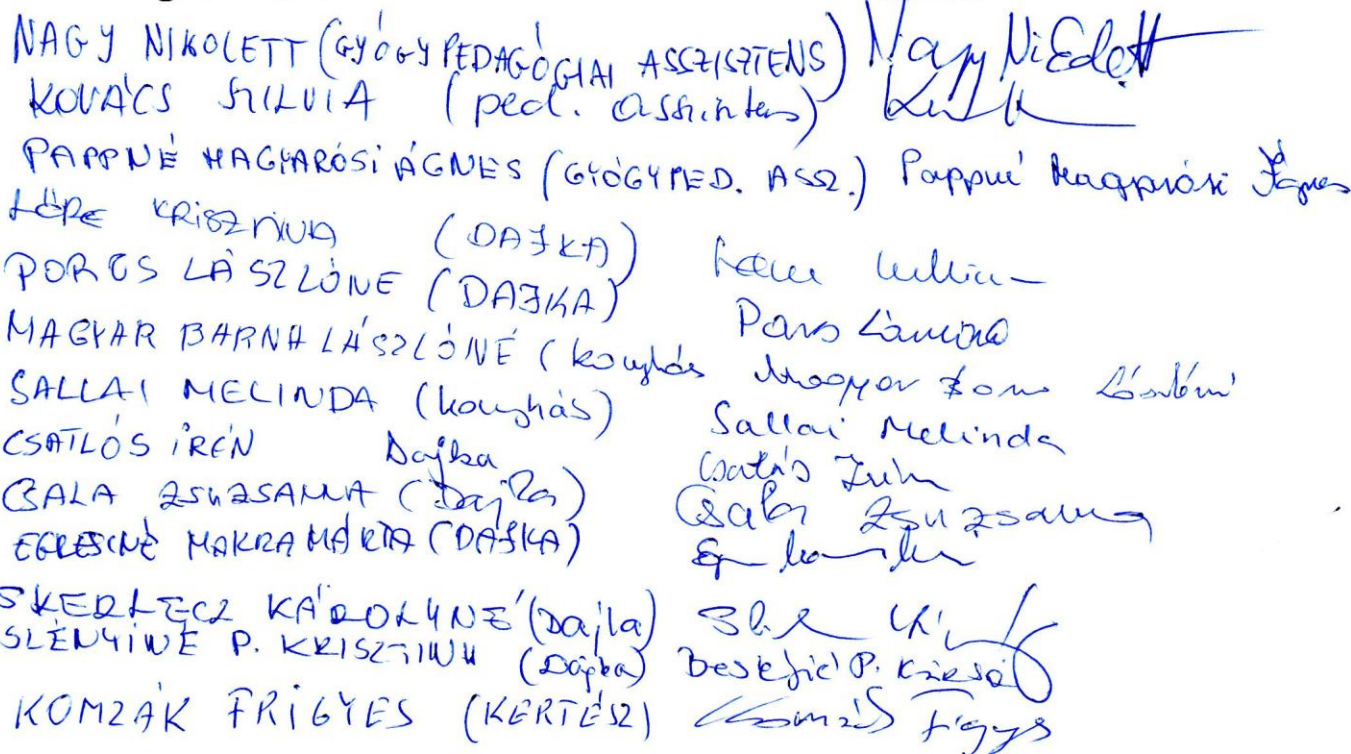 NAGY NIKOLETT (GYÓGYPEDAGÓGIAI ASSZISZTENS) Nagy Nikolett
KOVÁCS SZILVIA (ped. asszisztens)
PAPPNÉ MAGYARÓSI ÁGNES (GYÓGYPED. ASSZ.) Pappné Magyarósi Ágnes
KRISZTINA (DAJKA)
POROS LÁSZLÓNÉ (DAJKA) Poros Lászlóné
MAGYAR BARNA LÁSZLÓNÉ (konyhás Magyar Barna Lászlóné
SALLAI MELINDA (konyhás) Sallai Melinda
CSATLÓS IRÉN Dajka Csatlós Irén
CSALA ZSUZSANNA (Dajka) Csala Zsuzsanna
EGRESINÉ MAKRA MÁRTA (DAJKA)
SKERLECZ KÁROLYNÉ (Dajka)
P. KRISZTINA (Dajka)
KOMZÁK FRIGYES (KERTÉSZ) Komzák Frigyes